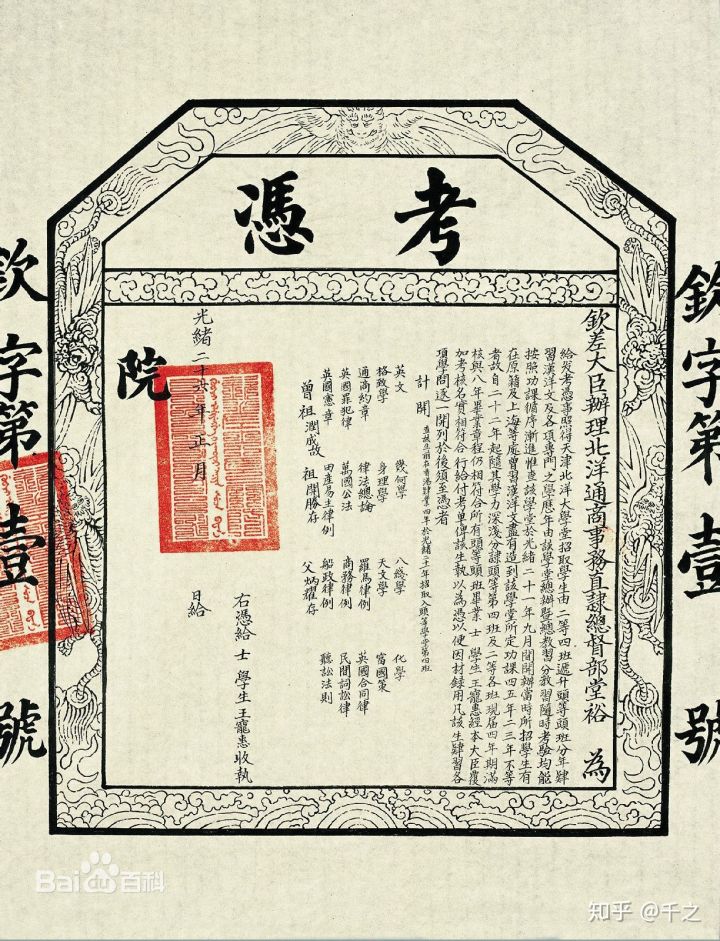 考憑
欽字第壹號
欽差大臣辦理北洋通商事務直隸總督部堂裕 為
給發考憑事照得天津北洋大學堂招取學生由二等四班遞升頭等頭班分年肄
習漢洋文及各項專門之學歷年由該學堂總辦暨總教習分教習隨時考驗均能
按照功課循序漸進惟查該學堂於光緒二十一年九月間開辦當時所招學生有
在原籍及上海等處曾習漢洋文盡有造到該學堂所定功課四五年二三年不等
者故自二十二年起隨其學力深淺分隸頭等第四班及二等各班現屆四年期滿
核與八年畢業章程仍相符合所有頭等頭班畢業 士 學生王寵惠經本大臣覆
加考核名實相符合行給付考單俾該生執以為憑以便因材錄用凡該生肄習各
項學問逐一開列於後須至憑者
計開 查該生前在香港肄業四年於光緒二十一年招取入頭等學堂第四班
英文 幾何學 八綫學 化學
格致學 身理學 天文學 富國策
通商約章 律法總論 羅馬律例 英國合同律
英國罪犯律 萬國公法 商務律例 民間詞訟律
英國憲章 田產易主律例 船政律例 聽訟法則
曾祖潤成故 祖開勝存 父炳耀存
右憑給 士 學生王寵惠收執
光緒二十六年正月 日給
院
欽字第壹號
Bai百科
知乎 @千之